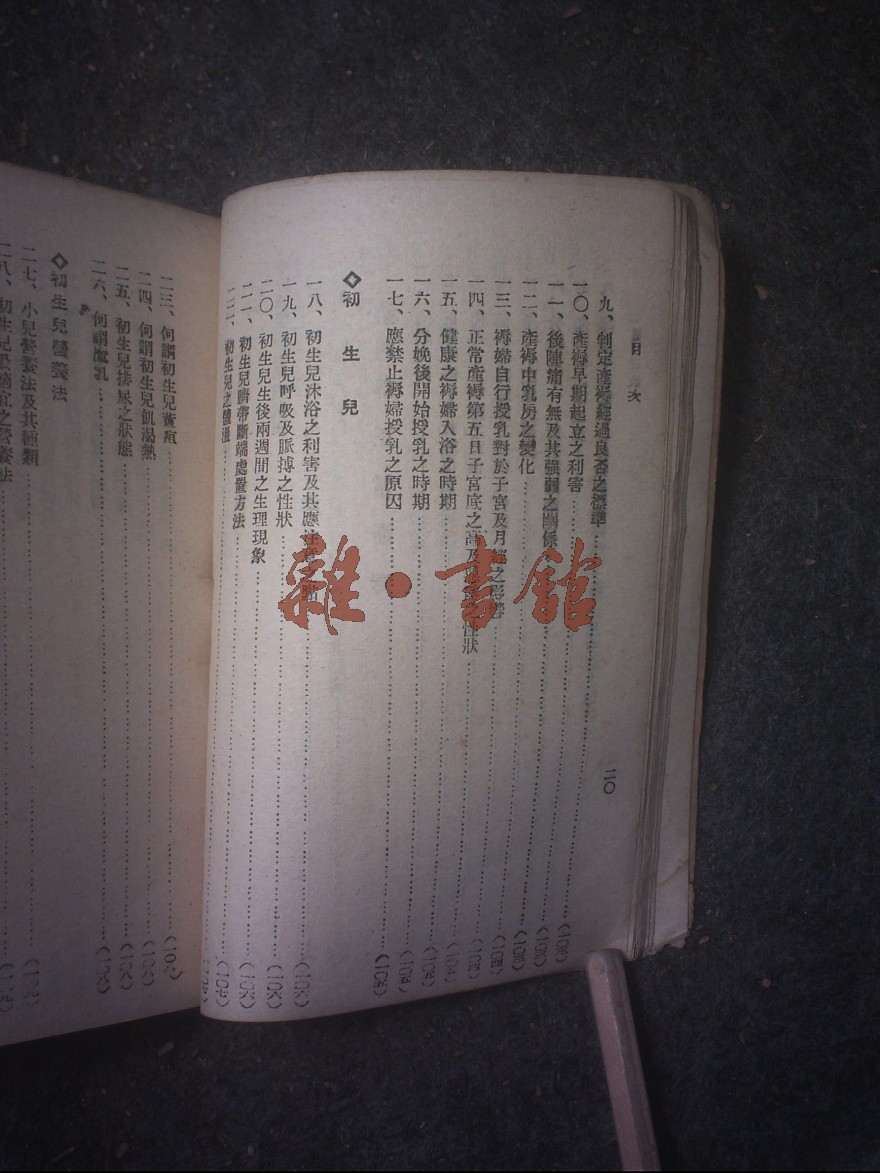 目 次
二〇
九、判定產褥經過良否之標準
一〇、產褥早期起立之利害……(一〇三)
一一、後陣痛有無及其強弱之關係……(一〇三)
一二、產褥中乳房之變化……(一〇三)
一三、褥婦自行授乳對於子宮及月經之影響……(一〇四)
一四、正常產褥第五日子宮底之高及 性狀
一五、健康之褥婦入浴之時期
一六、分娩後開始授乳之時期……(一〇五)
一七、應禁止褥婦授乳之原因……(一〇五)
◇初生兒
一八、初生兒沐浴之利害及其應注意之點……(一〇六)
一九、初生兒呼吸及脈搏之性狀……(一〇六)
二〇、初生兒生後兩週間之生理現象……(一〇六)
二一、初生兒臍帶斷端處置方法……(一〇七)
二二、初生兒之體溫
二三、何謂初生兒黃疸
二四、何謂初生兒飢渴熱
二五、初生兒排尿之狀態
二六、何謂 乳
◇初生兒營養法
二七、小兒營養法及其種類
二八、初生兒最適宜之營養法
雜·書館